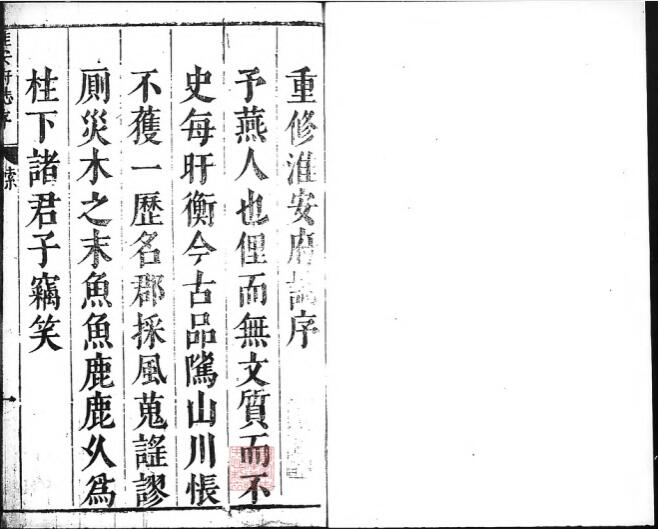 重修淮安府誌序
予燕人也俚而無文質而不
史每盱衡今古品隲山川悵
不獲一歷名郡採風蒐謠謬
厠災木之末魚魚鹿鹿久爲
柱下諸君子竊笑
淮安府志序
一